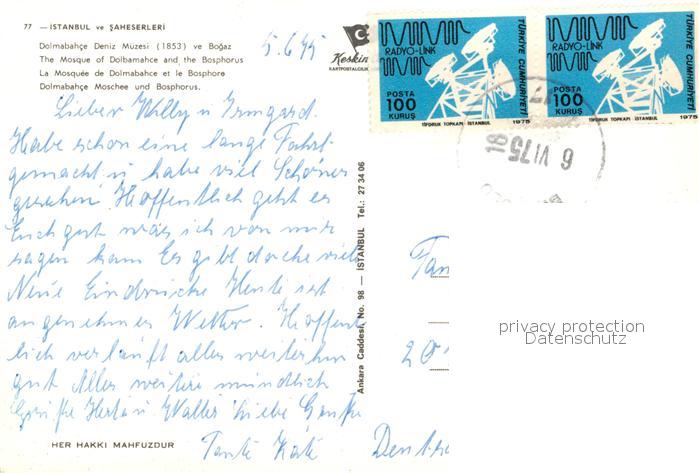 77 — İSTANBUL ve ŞAHESERLERİ
Dolmabahçe Deniz Müzesi (1853) ve Boğaz
The Mosque of Dolbamahce and the Bosphorus
La Mosquée de Dolmabahce et le Bosphore
Dolmabahçe Moschee und Bosphorus.
5.6.75
Keskin
KARTPOSTALCILIK
RADYO-LİNK
POSTA
100
KURUŞ
TÜRKİYE CUMHURİYETİ
TİFDRUK TOPKAPI İSTANBUL 1975
RADYO-LİNK
POSTA
100
KURUŞ
TÜRKİYE CUMHURİYETİ
TİFDRUK TOPKAPI İSTANBUL 1975
6 VI 75 18
Lieber Willy u Irmgard.
Habe schon eine lange Fahrt
gemacht u habe viel Schönes
gesehen Hoffentlich geht es
Euch gut was ich von mir
sagen kann Es gibt doch viele
Neue Eindrücke Heute ist
angenehmes Wetter. Hoffent
lich verläuft alles weiterhin
gut Alles weitere mündlich
Grüße Herta u Walter Liebe Grüße
Tante Käte
Ankara Caddesi, No. 98 — İSTANBUL Tel.: 27 34 06
HER HAKKI MAHFUZDUR
privacy protection
Datenschutz